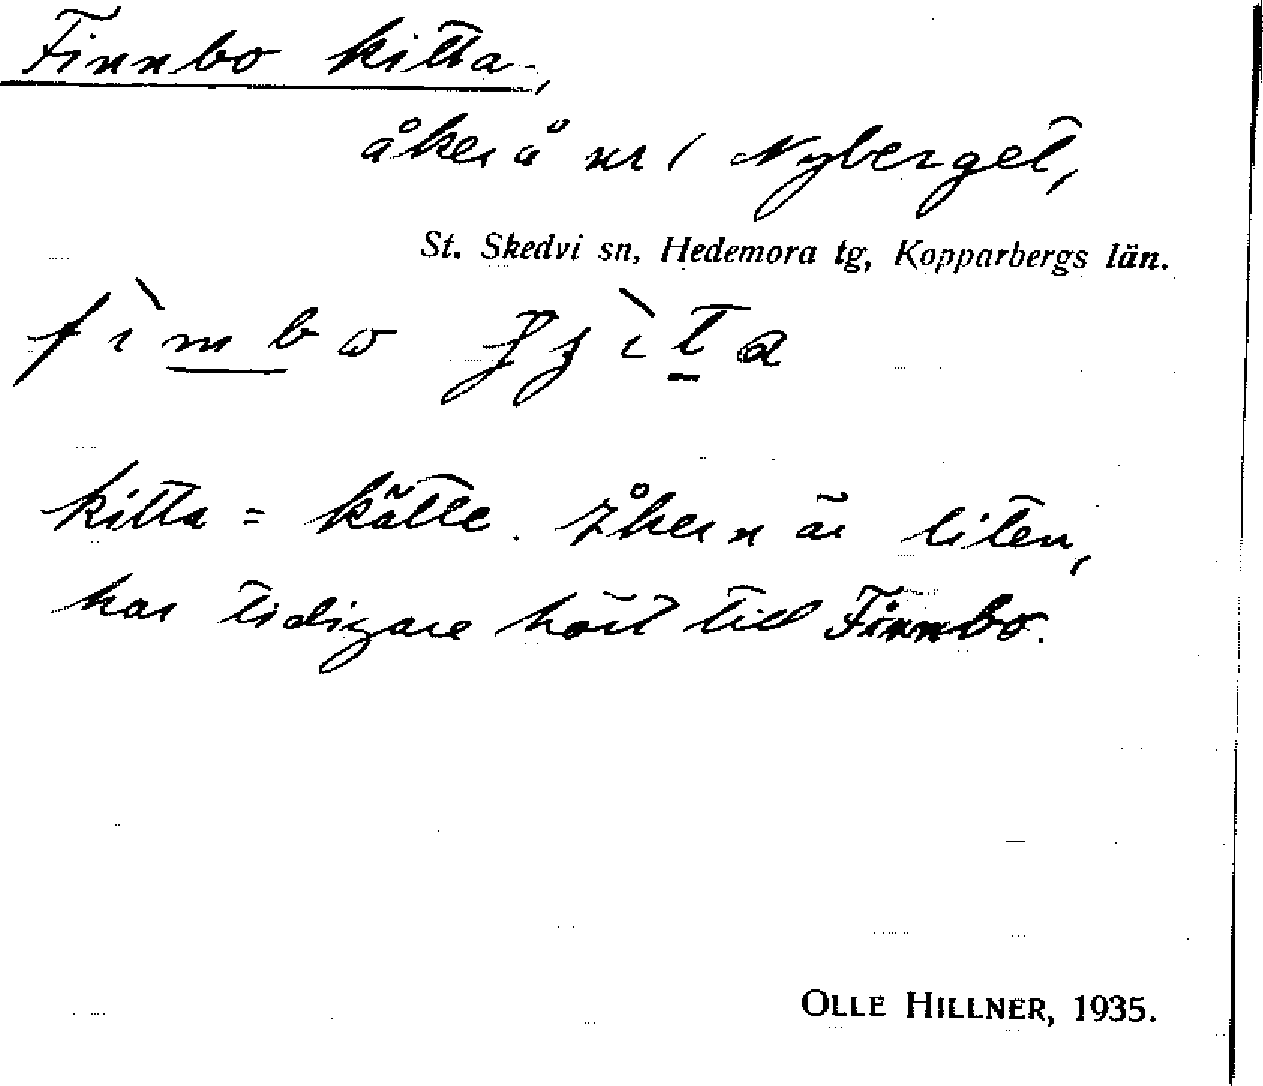 Finnbo kitta,
åker å nr 1 Nyberget,
St. Skedvi sn, Hedemora tg, Kopparbergs län.
kitta = kätte. Åkern är liten,
har tidigare hört till Finnbo.
OLLE HILLNER, 1935.